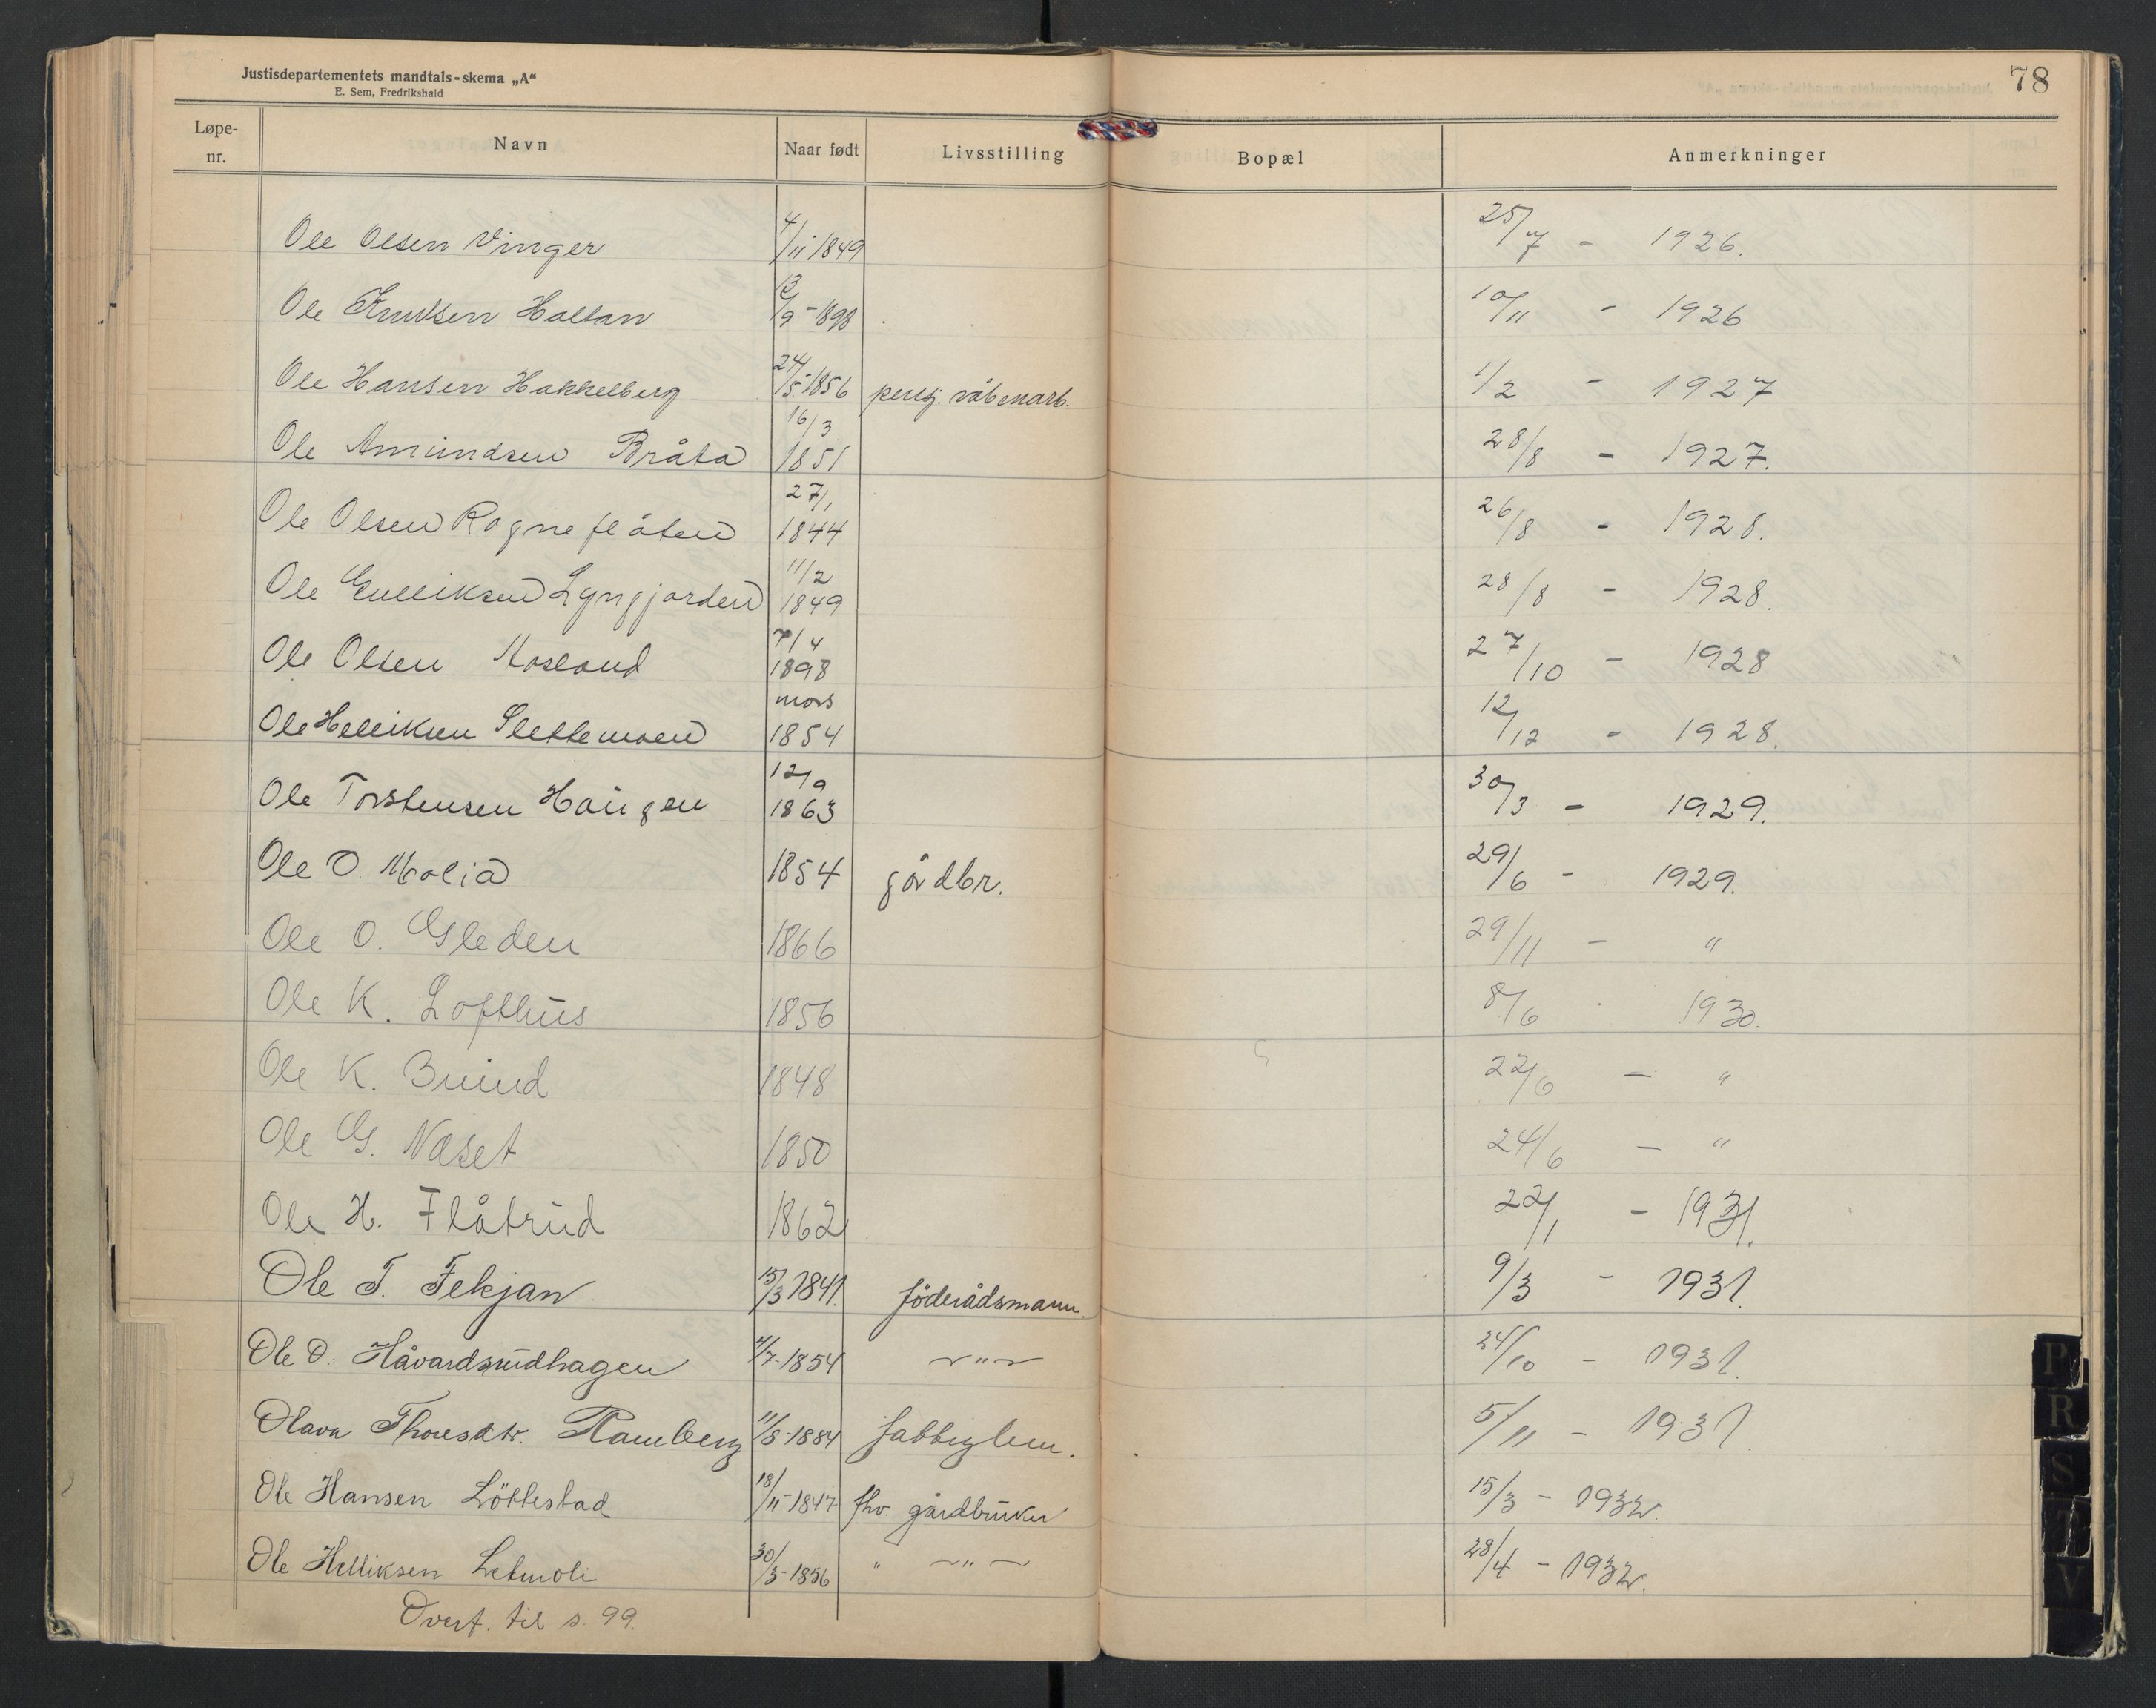 Justisdepartementets mandtals-skema „A“
E. Sem, Fredrikshald
78
Løpe-nr. Navn Naar født Livsstilling Bopæl Anmerkninger
Ole Olsen Vinger 4/11 1849 25/7 - 1926.
Ole Knutsen Haltan 13/9 - 1898 10/11 - 1926
Ole Hansen Hakkelberg 24/5-1856 pensj. våbenarb. 1/2 - 1927
Ole Amundsen Bråta 16/3 1851 28/8 - 1927.
Ole Olsen Rogneflåten 27/1 1844 26/8 - 1928.
Ole Gulliksen Lyngjorden 11/2 1849 28/8 - 1928.
Ole Olsen 7/4 1898 27/10 - 1928
Ole Helliksen Slettemoen mars 1854 12/12 - 1928.
Ole Torstensen Haugen 12/9 1863 30/3 - 1929.
Ole O. Molia 1854 gårdbr. 29/6 - 1929.
Ole O. Gleden 1866 29/11 - "
Ole K. Lofthus 1856 8/6 1930.
Ole K. 1848 22/6 - "
Ole G. Næset 1850 24/6 - "
Ole H. Flåtrud 1862 22/1 - 1931.
Ole T. Fekjan 15/3 1841. föderådsmann. 9/3 - 1931.
Ole O. Håvardsrudhagen /7-1854 -"- 24/10 - 1931.
Olava Thoresdtr. Ramberg 11/8-1884 fattiglem. 5/11 - 1931.
Ole Hansen Löttestad 18/11-1847 fhv. gårdbruker 15/3 - 1932.
Ole Helliksen Letmoli 30/3-1856 " -"- 28/4 - 1932.
Overf. til s. 99.
P
R
S
T
V